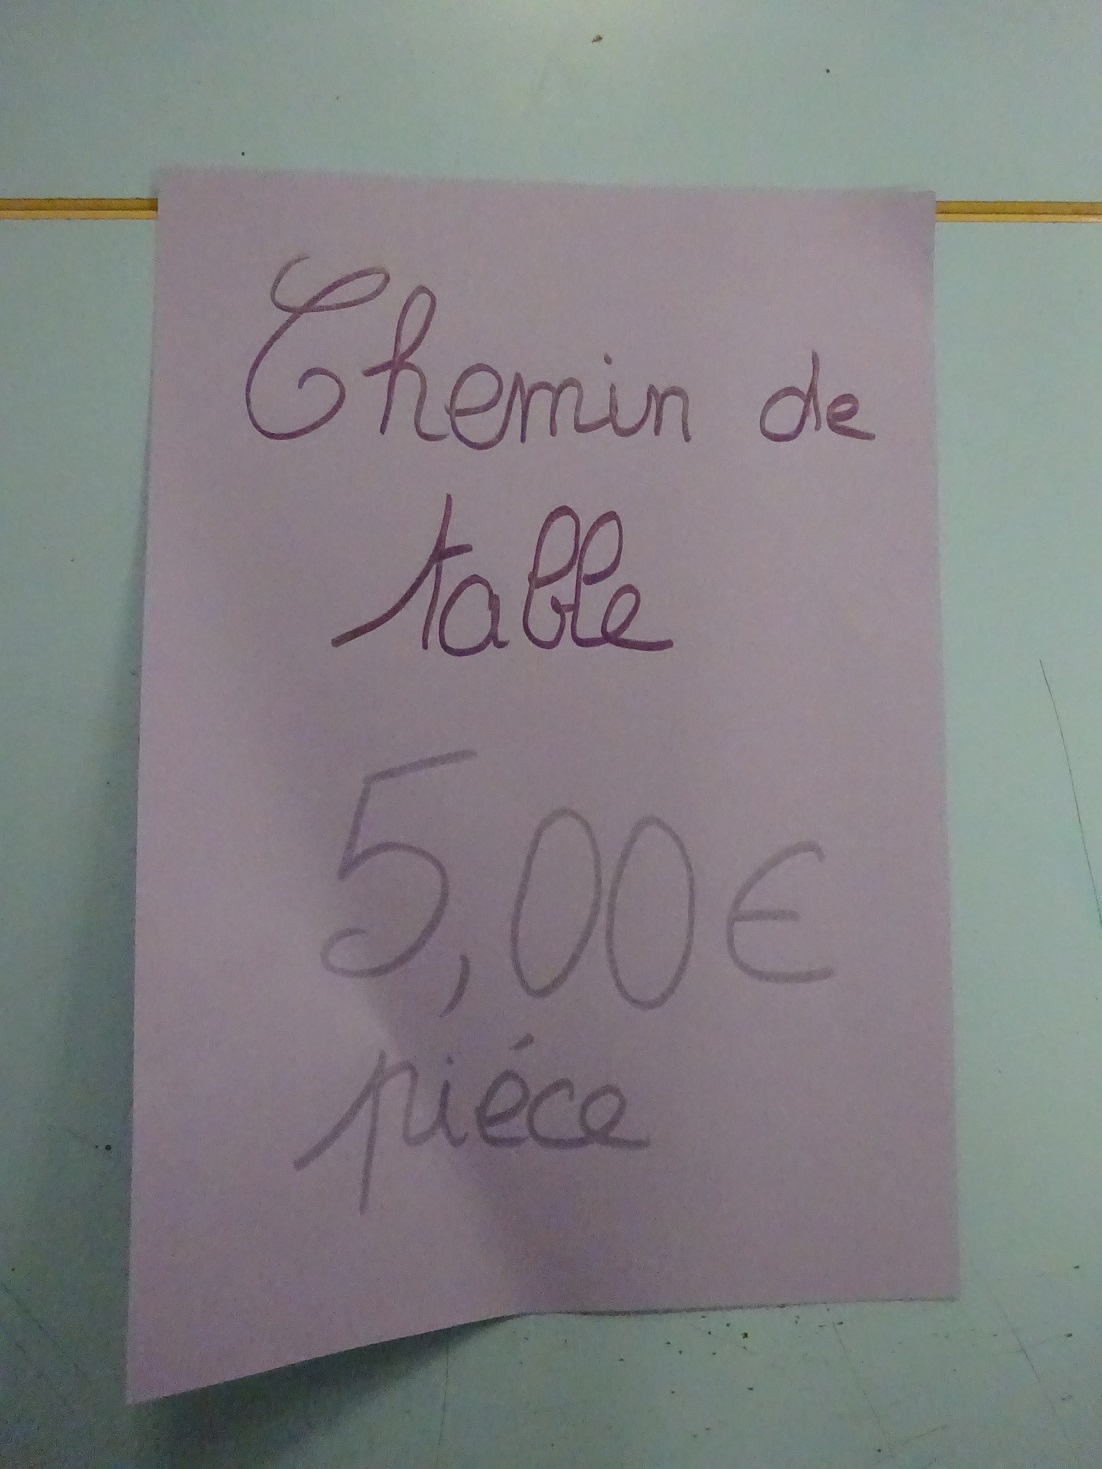 Chemin de
table
5,00€
piéce